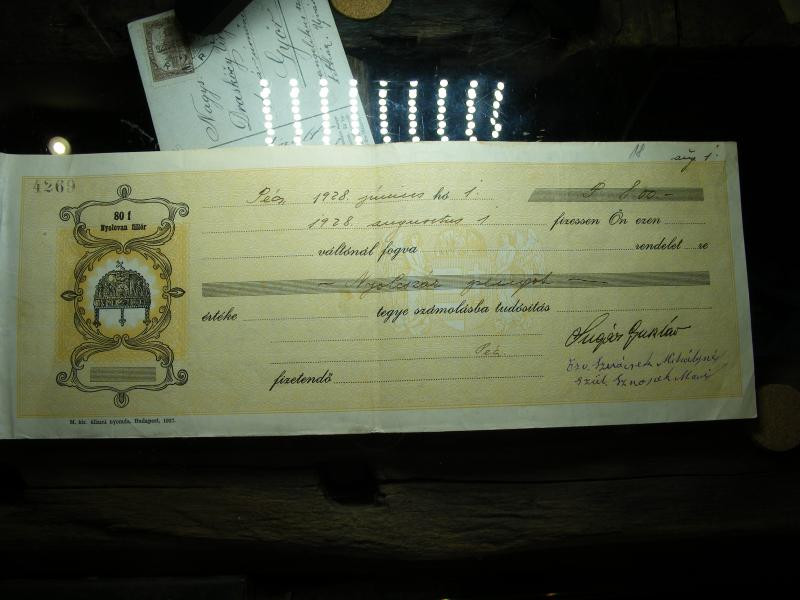 Nagys.
Draskóczy
Győr
18 aug 1.
4269
80 f
Nyolcvan fillér
Pécs 1928. június hó 1. P 800.-
1928. augusztus 1 fizessen Ön ezen
váltónál fogva rendelet re
Nyolcszáz pengőt
értéke tegye számolásba tudósítás
Sugár Gusztáv
Pécs
Özv. Mihályné
fizetendő
szül.
M. kir. állami nyomda, Budapest, 1927.